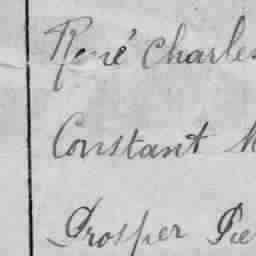 René Charles
Constant
Prosper Pie